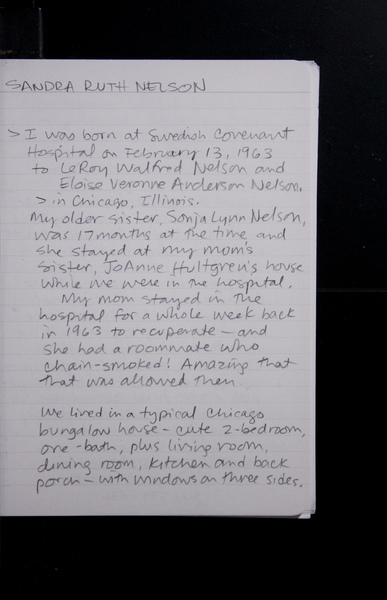 SANDRA RUTH NELSON
> I was born at Swedish Covenant
Hospital on February 13, 1963
to LeRoy Walfred Nelson and
Eloise Veronne Anderson Nelson.
> in Chicago, Illinois.
My older sister, Sonja Lynn Nelson,
was 17 months at the time and
she stayed at my mom's
sister, JoAnne Hultgren's house
while we were in the hospital.
My mom stayed in the
hospital for a whole week back
in 1963 to recuperate – and
she had a roommate who
chain-smoked! Amazing that
that was allowed then.
We lived in a typical Chicago
bungalow house – cute 2-bedroom,
one-bath, plus living room,
dining room, kitchen and back
porch – with windows on three sides.